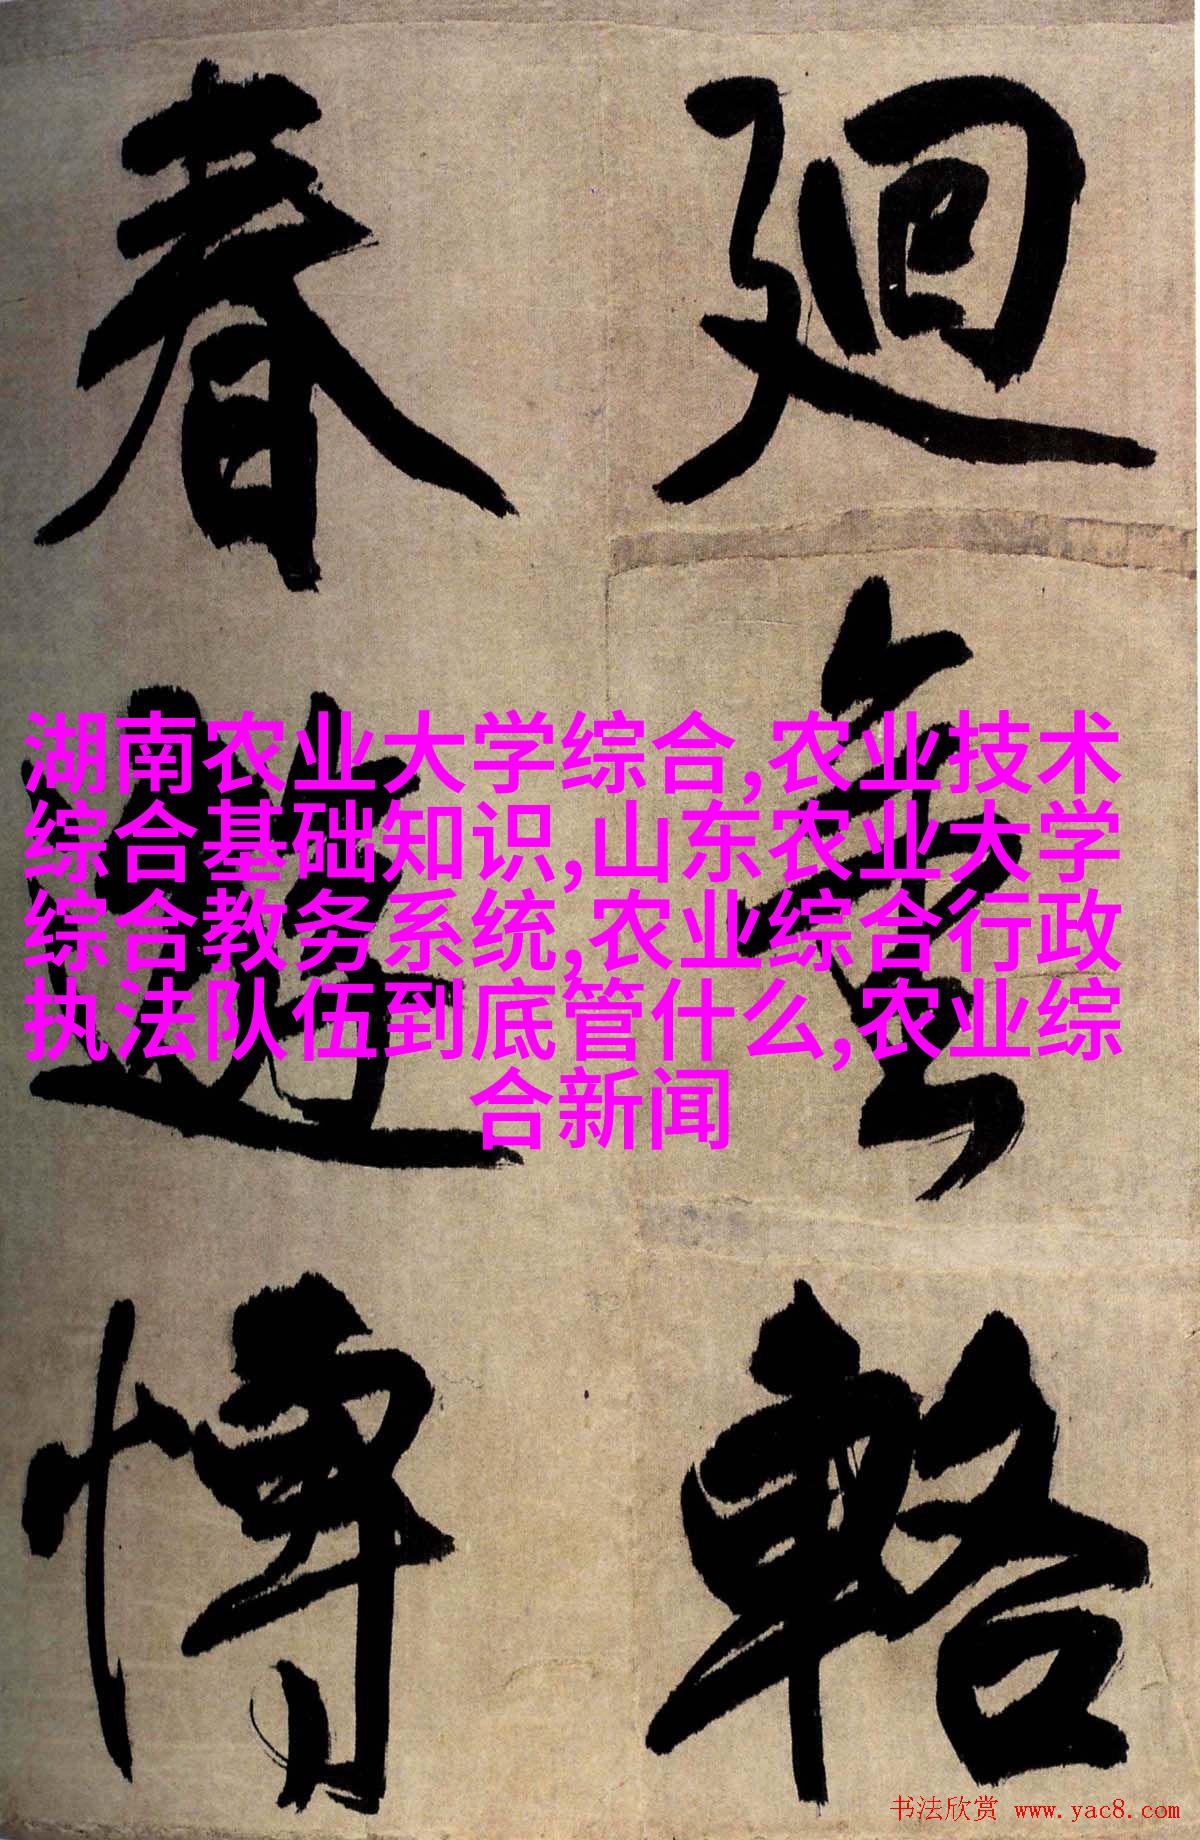 迴輅
春遊愽
湖南农业大学综合,农业技术
综合基础知识,山东农业大学
综合教务系统,农业综合行政
执法队伍到底管什么,农业综
合新闻
书法欣赏 www.yac8.com